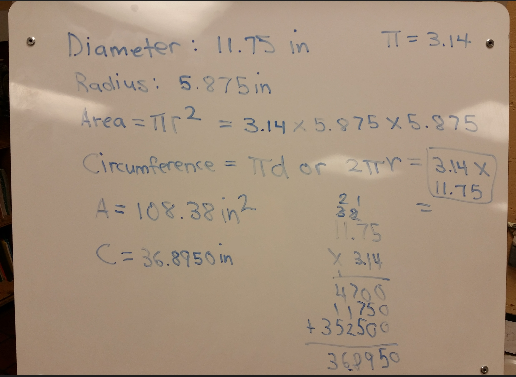 Diameter: 11.75 in π = 3.14
Radius: 5.875 in
Area = πr² = 3.14 × 5.875 × 5.875
Circumference = πd or 2πr = 3.14 ×
11.75
=
A = 108.38 in²
C = 36.8950 in
2 1
3 2
11.75
× 3.14
1
4700
11750
+352500
36.8950